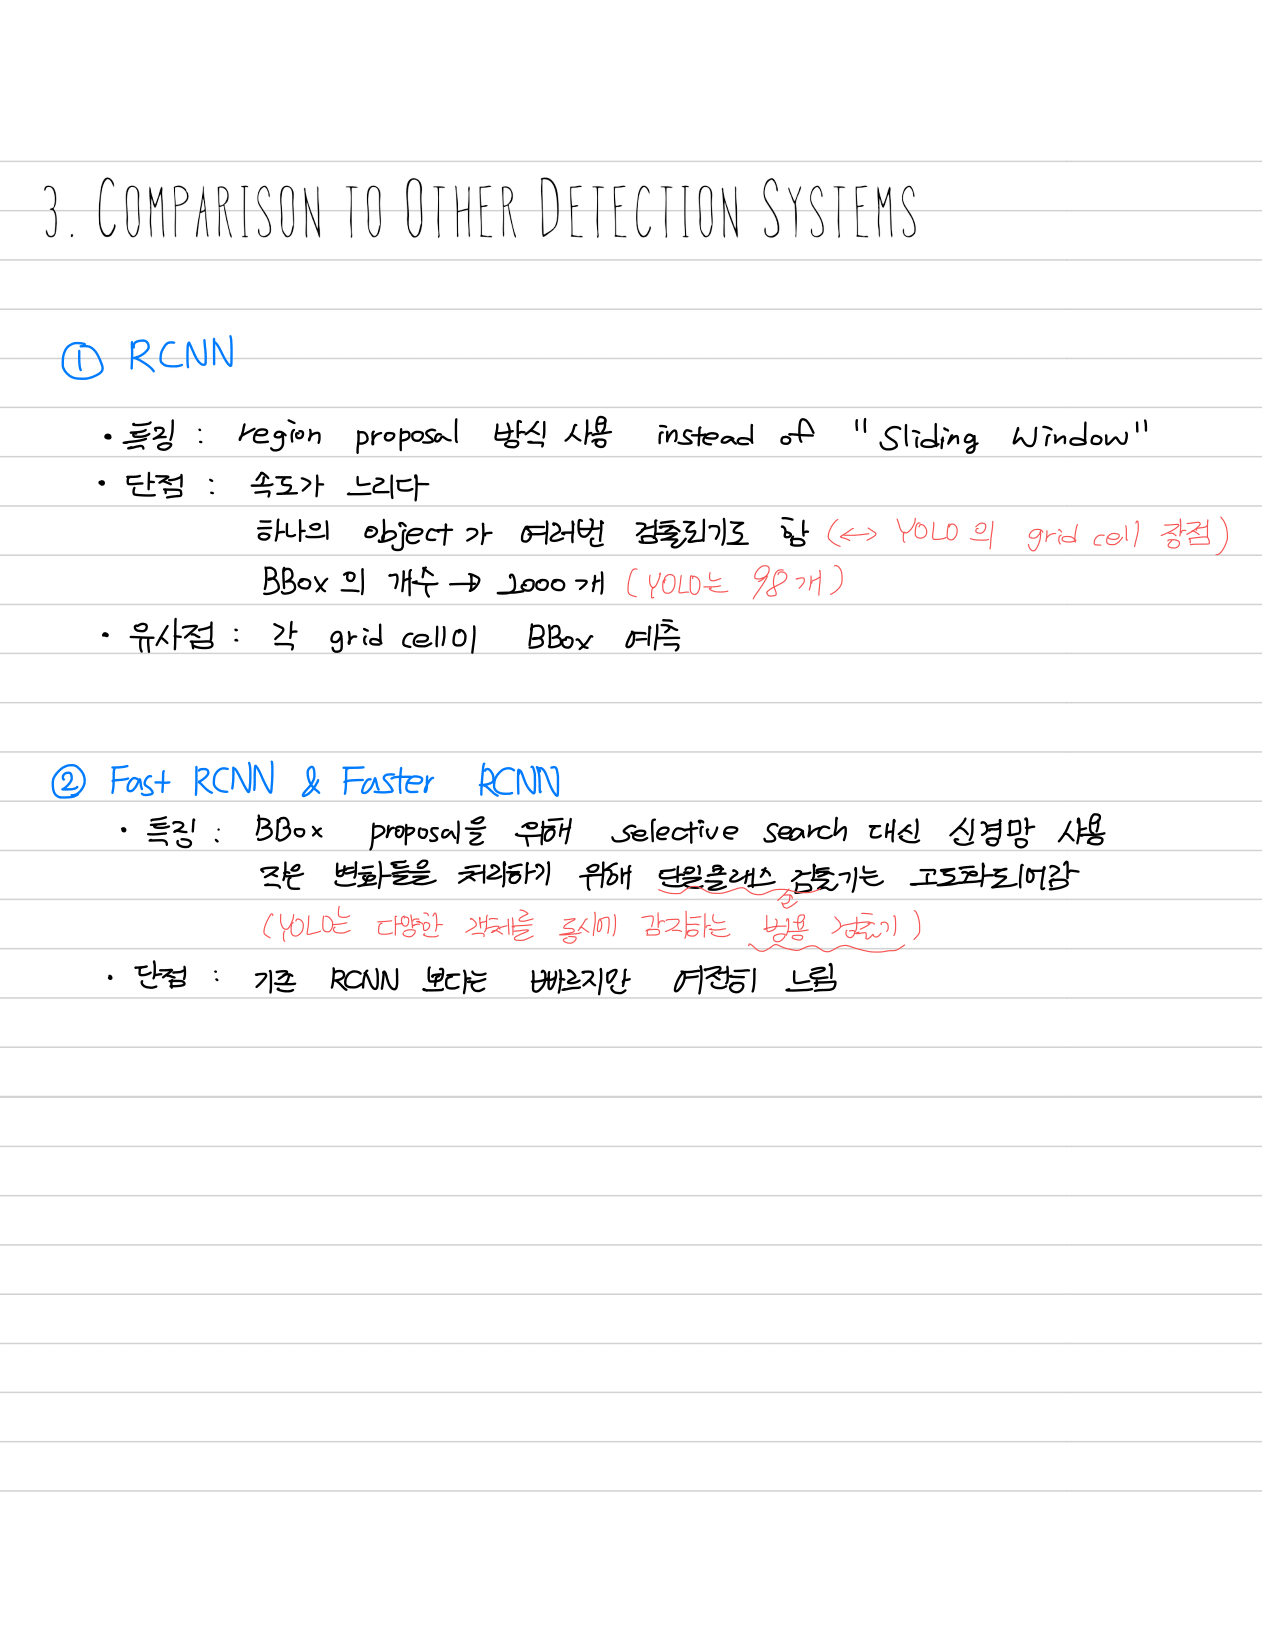 3. COMPARISON TO OTHER DETECTION SYSTEMS
① RCNN
• 특징 : region proposal 방식 사용 instead of "Sliding Window"
• 단점 : 속도가 느리다
하나의 object가 여러번 검출되기도 함 (↔ YOLO의 grid cell 장점)
BBox의 개수 → 2000개 (YOLO는 98개)
• 유사점 : 각 grid cell이 BBox 예측
② Fast RCNN & Faster RCNN
• 특징 : BBox proposal을 위해 selective search 대신 신경망 사용
작은 변화들을 처리하기 위해 단일클래스 검출기는 고도화되어감
(YOLO는 다양한 객체를 동시에 감지하는 범용 검출기)
• 단점 : 기존 RCNN 보다는 빠르지만 여전히 느림